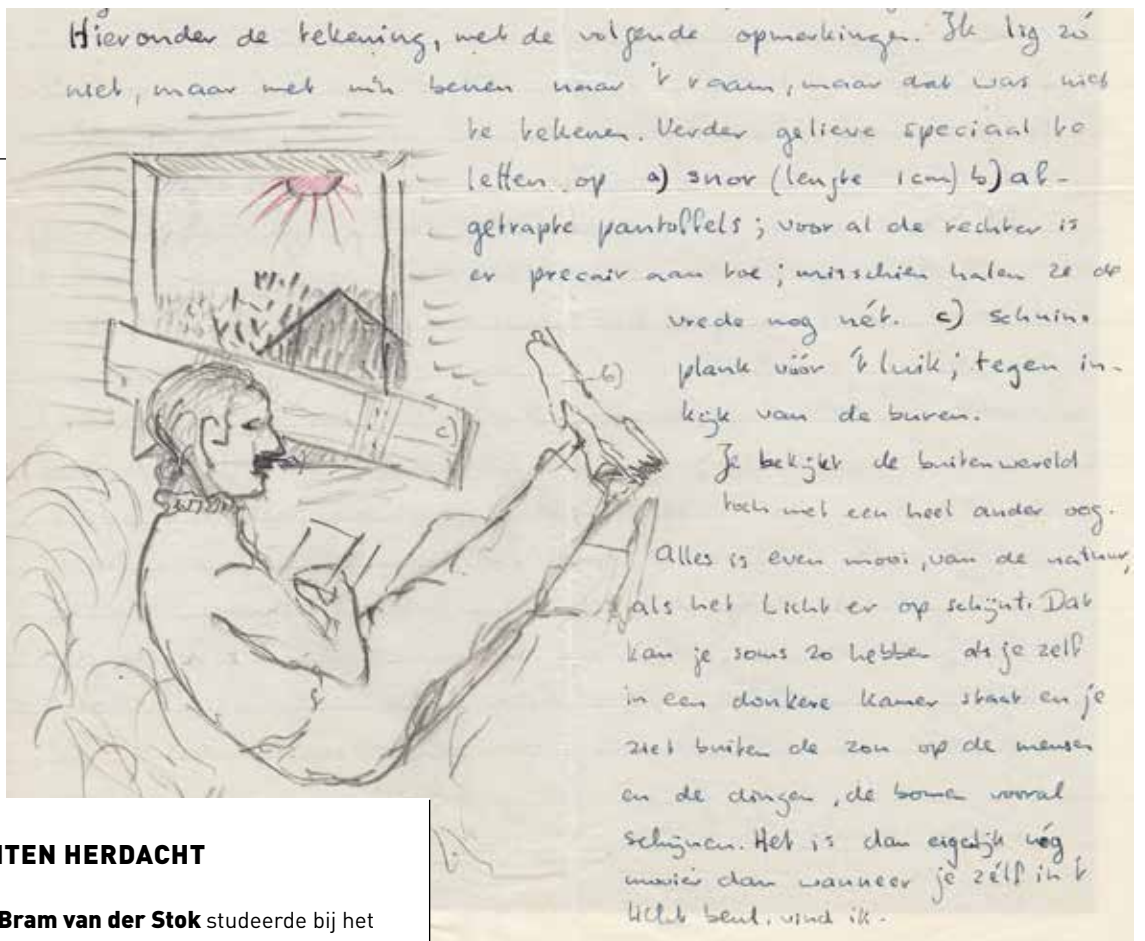 Hieronder de tekening, met de volgende opmerkingen. Ik lig zó
niet, maar met m'n benen naar 't raam, maar dat was niet
te tekenen. Verder gelieve speciaal te
letten op a) snor (lengte 1 cm) b) af-
getrapte pantoffels; vooral de rechter is
er precair aan toe; misschien halen ze de
vrede nog nét. c) schuine
plank vóór 't luik; tegen in-
kijk van de buren.
Je bekijkt de buitenwereld
toch met een heel ander oog.
Alles is even mooi, van de natuur,
als het licht er op schijnt. Dat
kan je soms zo hebben als je zelf
in een donkere kamer staat en je
ziet buiten de zon op de mensen
en de dingen, de bomen vooral
schijnen. Het is dan eigenlijk nóg
mooier dan wanneer je zélf in 't
licht bent, vind ik.
b)
c)
NTEN HERDACHT
Bram van der Stok studeerde bij het